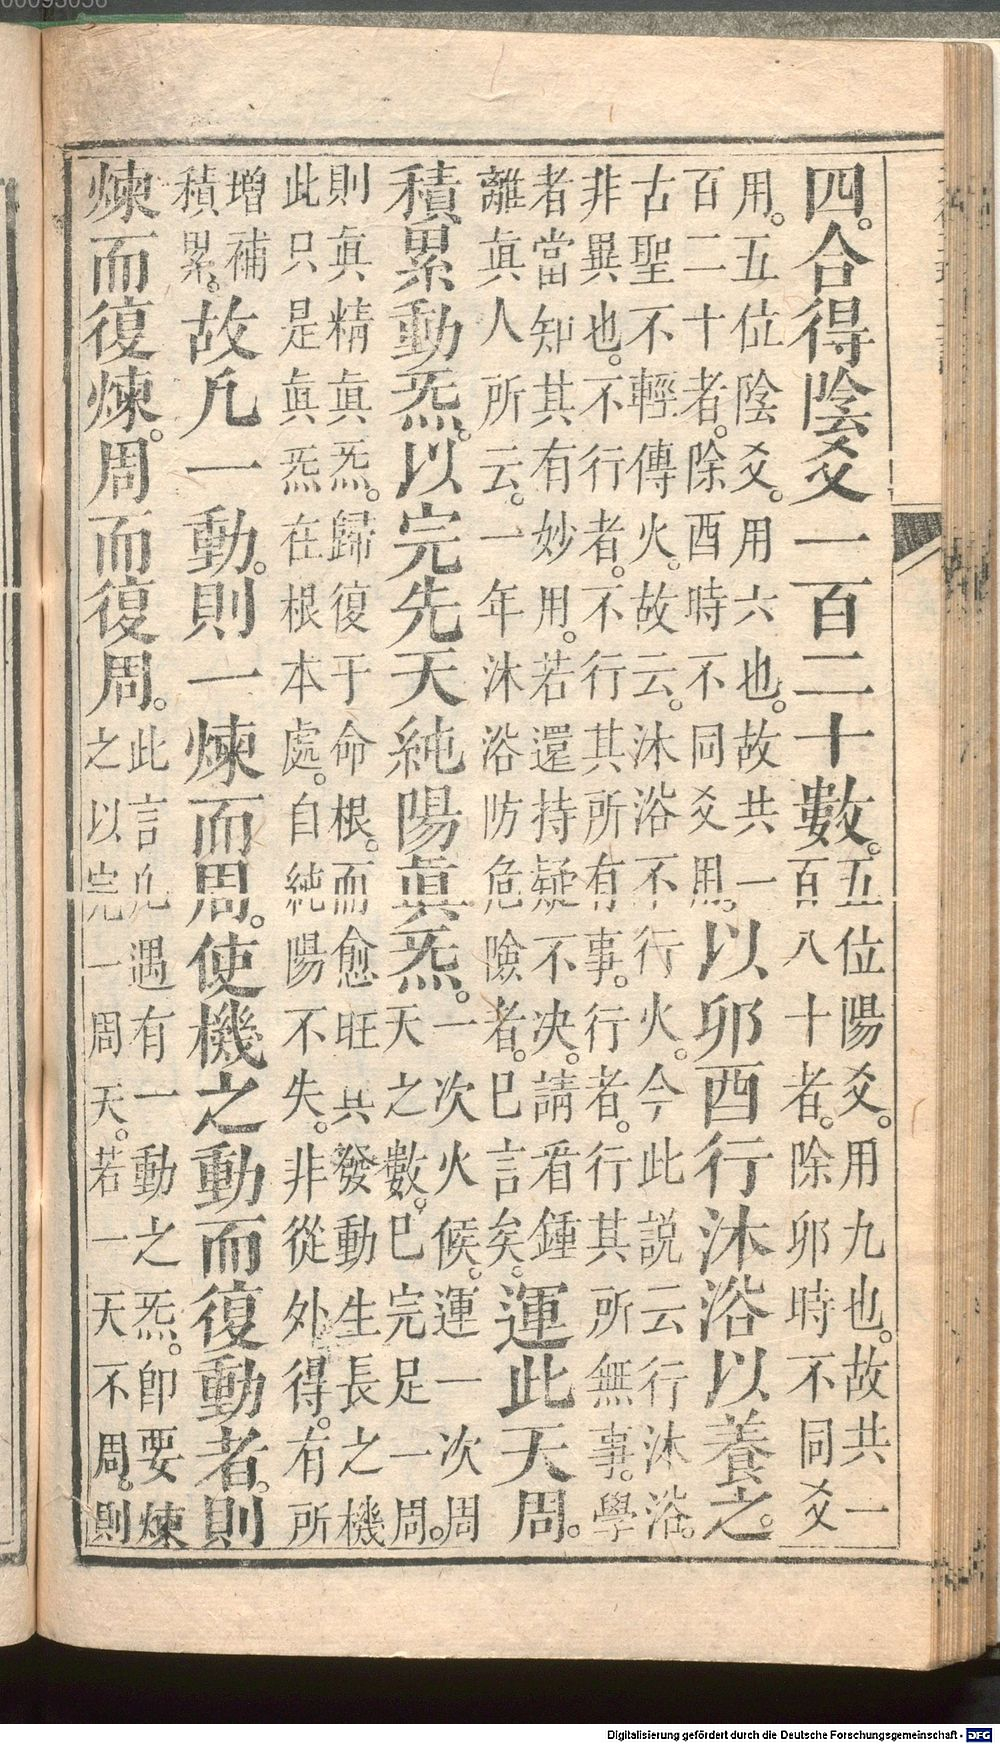 四。合得陰爻一百二十數。
五位陽爻。用九也。故共一
百八十者。除卯時不同爻
用。五位陰爻。用六也。故共一
百二十者。除酉時不同爻用。
以卯酉行沐浴以養之。
古聖不輕傳火。故云。沐浴不行火。今此説云行沐浴。
非異也。不行者。不行其所有事。行者。行其所無事。學
者當知其有妙用。若還持疑不决。請看鍾
離眞人所云。一年沐浴防危險者。巳言矣。
運此天周。
積累動炁。以完先天純陽眞炁。
一次火候。運一次周
天之數。巳完足一周。
則眞精眞炁。歸復于命根。而愈旺其發動生長之機
此只是眞炁在根本處。自純陽不失。非從外得。有所
增補
積累。
故凡一動。則一煉而周。使機之動而復動者。則
煉而復煉。周而復周。
此言凡遇有一動之炁。卽要煉
之以完一周天。若一天不周。則
Digitalisierung gefördert durch die Deutsche Forschungsgemeinschaft - DFG